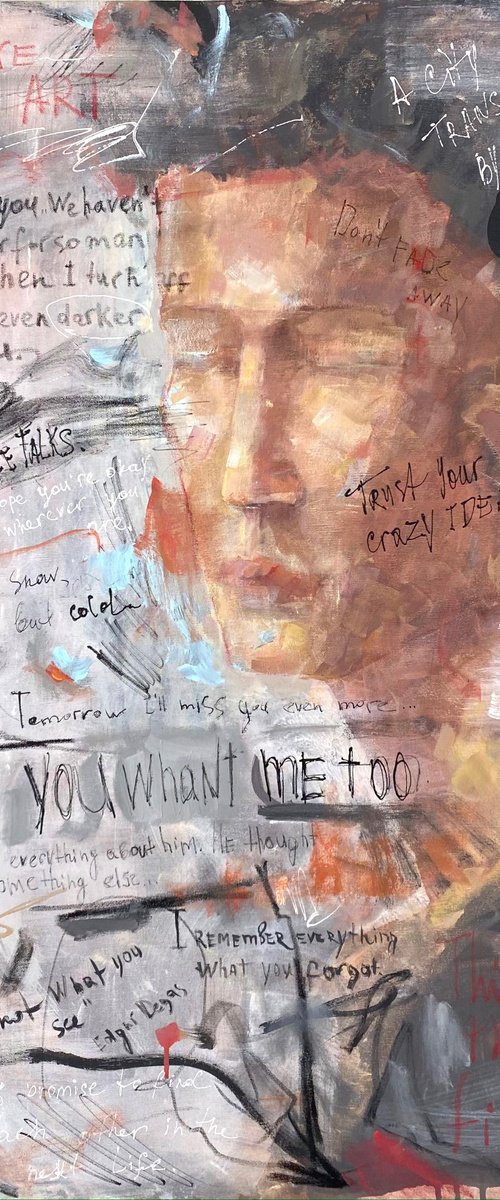 ART
A CITY
TRANS
BY
you. We haven't
r for so man
hen I turn off
even darker
Don't FADE
AWAY
E TALKS.
ope you're okay
wherever you
are.
Trust your
crazy IDE
Snow,
but cold
Tomorrow I'll miss you even more...
you whant me too
everything about him. He thought
omething else...
I REMEMBER everything
what you forgot.
not what you
see"
Edgar Degas
promise to find
each other in the
next Life.